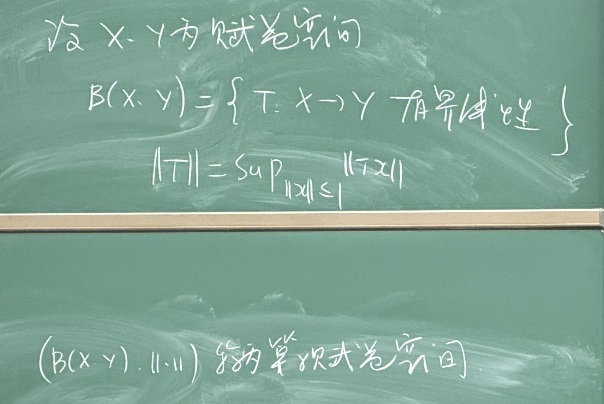 设 X、Y为赋范空间
B(X、Y)={T: X→Y 有界线性}
||T||=Sup_{||x||≤1}||Tx||
(B(X、Y),||·||) 称为算子赋范空间